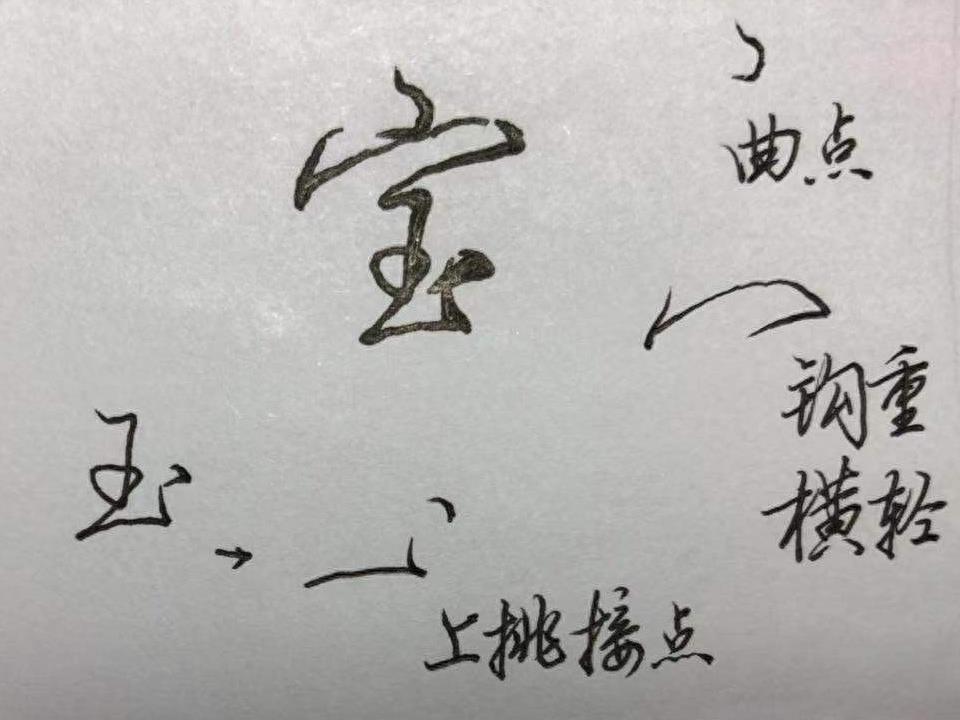 宝
曲点
钩重
横轻
玉
上挑接点